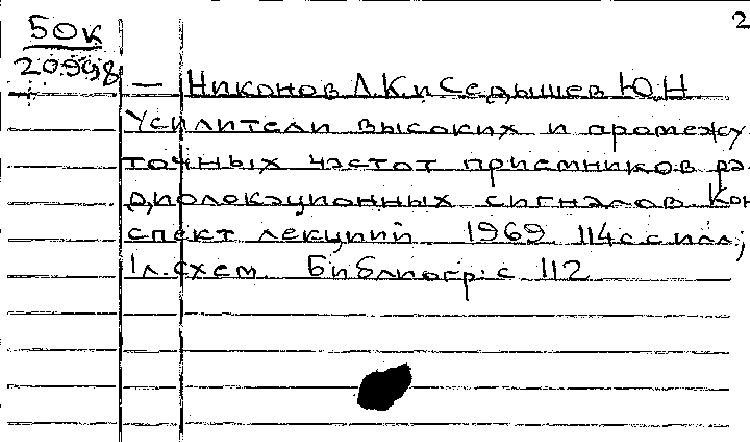 2
50К
20998
— Никонов Л.К и Седышев Ю.Н
Усилители высоких и промежу
точных частот приемников ра
диолокационных сигналов Кон
спект лекций 1969 114с с илл;
1л.схем. Библиогр: с 112